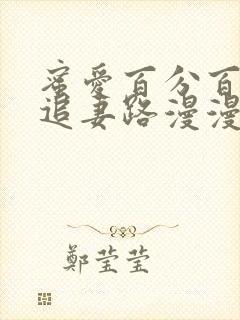 蜜愛百分百
追妻路漫漫
鄭莹莹